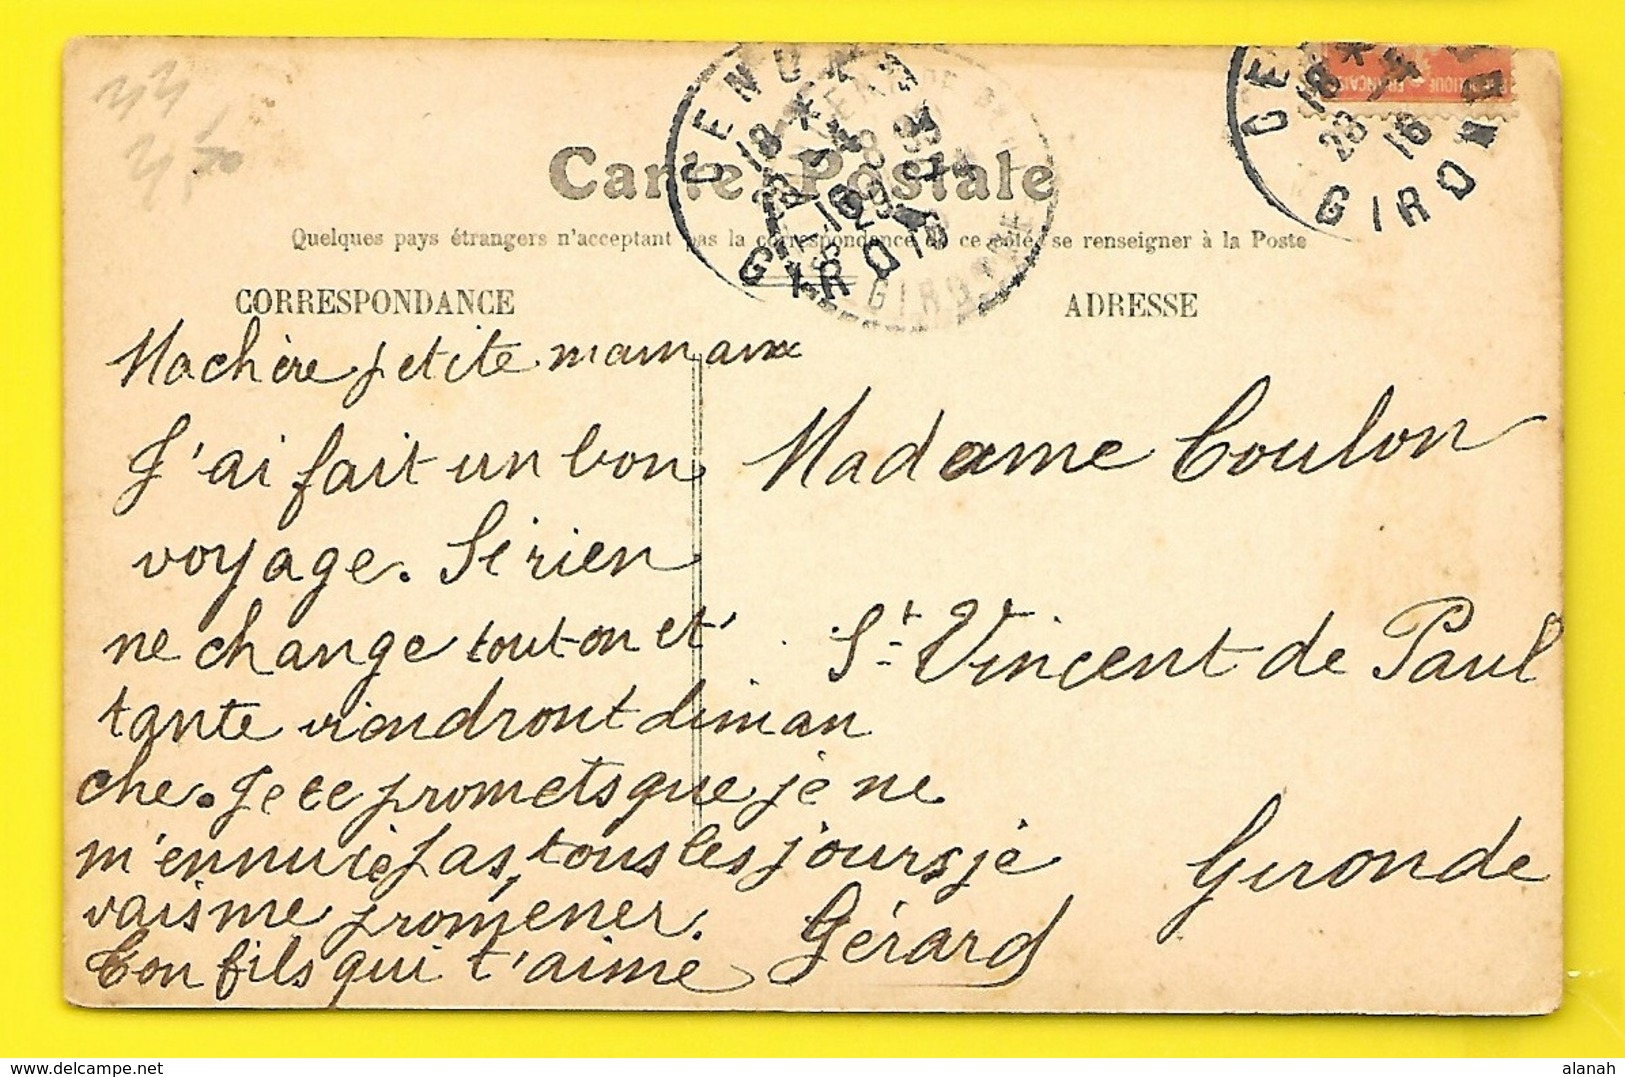 33
3,50
Carte Postale
Quelques pays étrangers n'acceptant pas la correspondance de ce côté, se renseigner à la Poste
CORRESPONDANCE
ADRESSE
GIRONDE
18 *
23 - 4
16
GIROND
Ma chère petite maman
J'ai fait un bon
voyage. Si rien
ne change tonton et
tante viendront diman
che. Je te promets que je ne
m'ennuie pas, tous les jours je
vais me promener.
Ton fils qui t'aime Gérard
Madame Coulon
St Vincent de Paul
Gironde
delcampe.net
alanah